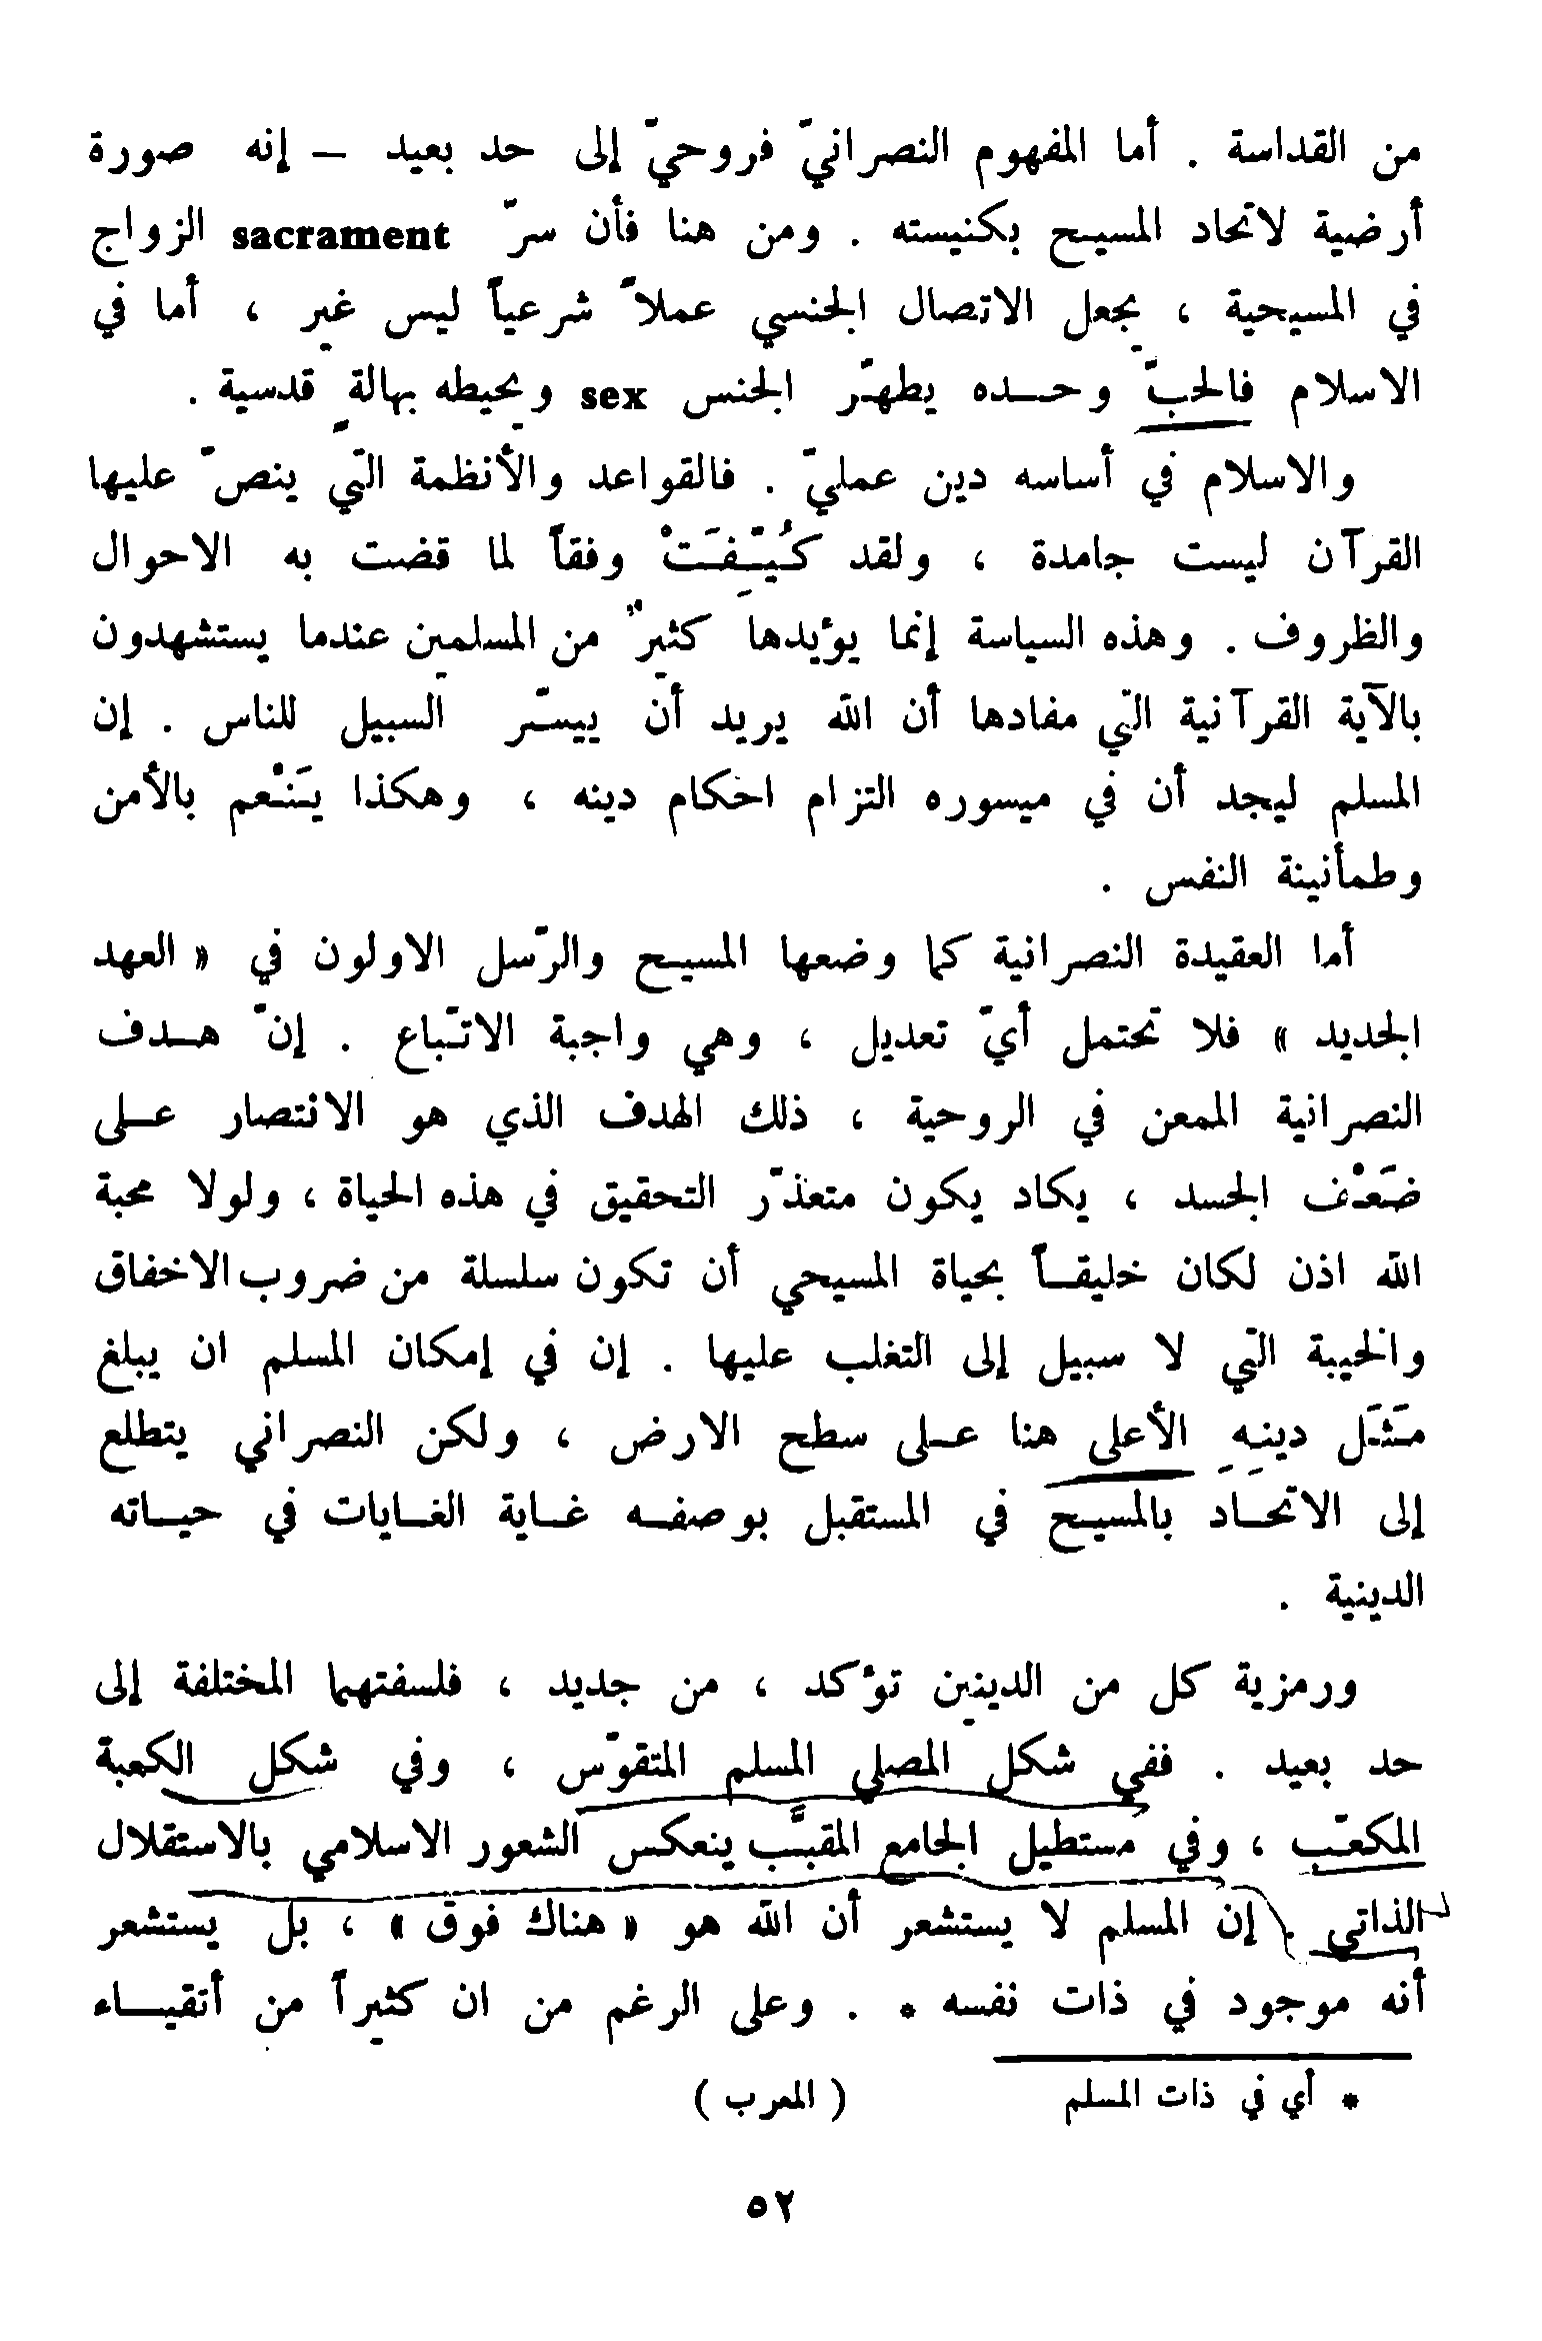 من القداسة . أما المفهوم النصرانيّ فروحيّ إلى حد بعيد – إنه صورة
أرضية لاتحاد المسيح بكنيسته . ومن هنا فأن سرّ sacrament الزواج
في المسيحية ، يجعل الاتصال الجنسي عملاً شرعياً ليس غير ، أما في
الاسلام فالحبّ وحده يطهّر الجنس sex ويحيطه بهالةٍ قدسية .
والاسلام في أساسه دين عمليّ . فالقواعد والأنظمة التي ينصّ عليها
القرآن ليست جامدة ، ولقد كُيِّفَتْ وفقاً لما قضت به الاحوال
والظروف . وهذه السياسة إنما يؤيدها كثيرٌ من المسلمين عندما يستشهدون
بالآية القرآنية التي مفادها أن الله يريد أن ييسّر السبيل للناس . إن
المسلم ليجد أن في ميسوره التزام احكام دينه ، وهكذا يَنْعم بالأمن
وطمأنينة النفس .
أما العقيدة النصرانية كما وضعها المسيح والرّسل الاولون في « العهد
الجديد » فلا تحتمل أيّ تعديل ، وهي واجبة الاتّباع . إنّ هدف
النصرانية الممعن في الروحية ، ذلك الهدف الذي هو الانتصار على
ضَعْف الجسد ، يكاد يكون متعذّر التحقيق في هذه الحياة ، ولولا محبة
الله اذن لكان خليقاً بحياة المسيحي أن تكون سلسلة من ضروب الاخفاق
والخيبة التي لا سبيل إلى التغلب عليها . إن في إمكان المسلم ان يبلغ
مَثَل دينِهِ الأعلى هنا على سطح الارض ، ولكن النصراني يتطلع
إلى الاتحاد بالمسيح في المستقبل بوصفه غاية الغايات في حياته
الدينية .
ورمزية كل من الدينين تؤكد ، من جديد ، فلسفتهما المختلفة إلى
حد بعيد . ففي شكل المصلي المسلم المتقوّس ، وفي شكل الكعبة
المكعّب ، وفي مستطيل الجامع المقبَّب ينعكس الشعور الاسلامي بالاستقلال
الذاتي . إن المسلم لا يستشعر أن الله هو « هناك فوق » ، بل يستشعر
أنه موجود في ذات نفسه * . وعلى الرغم من ان كثيراً من أتقياء
* أي في ذات المسلم ( المعرب )
٥٢